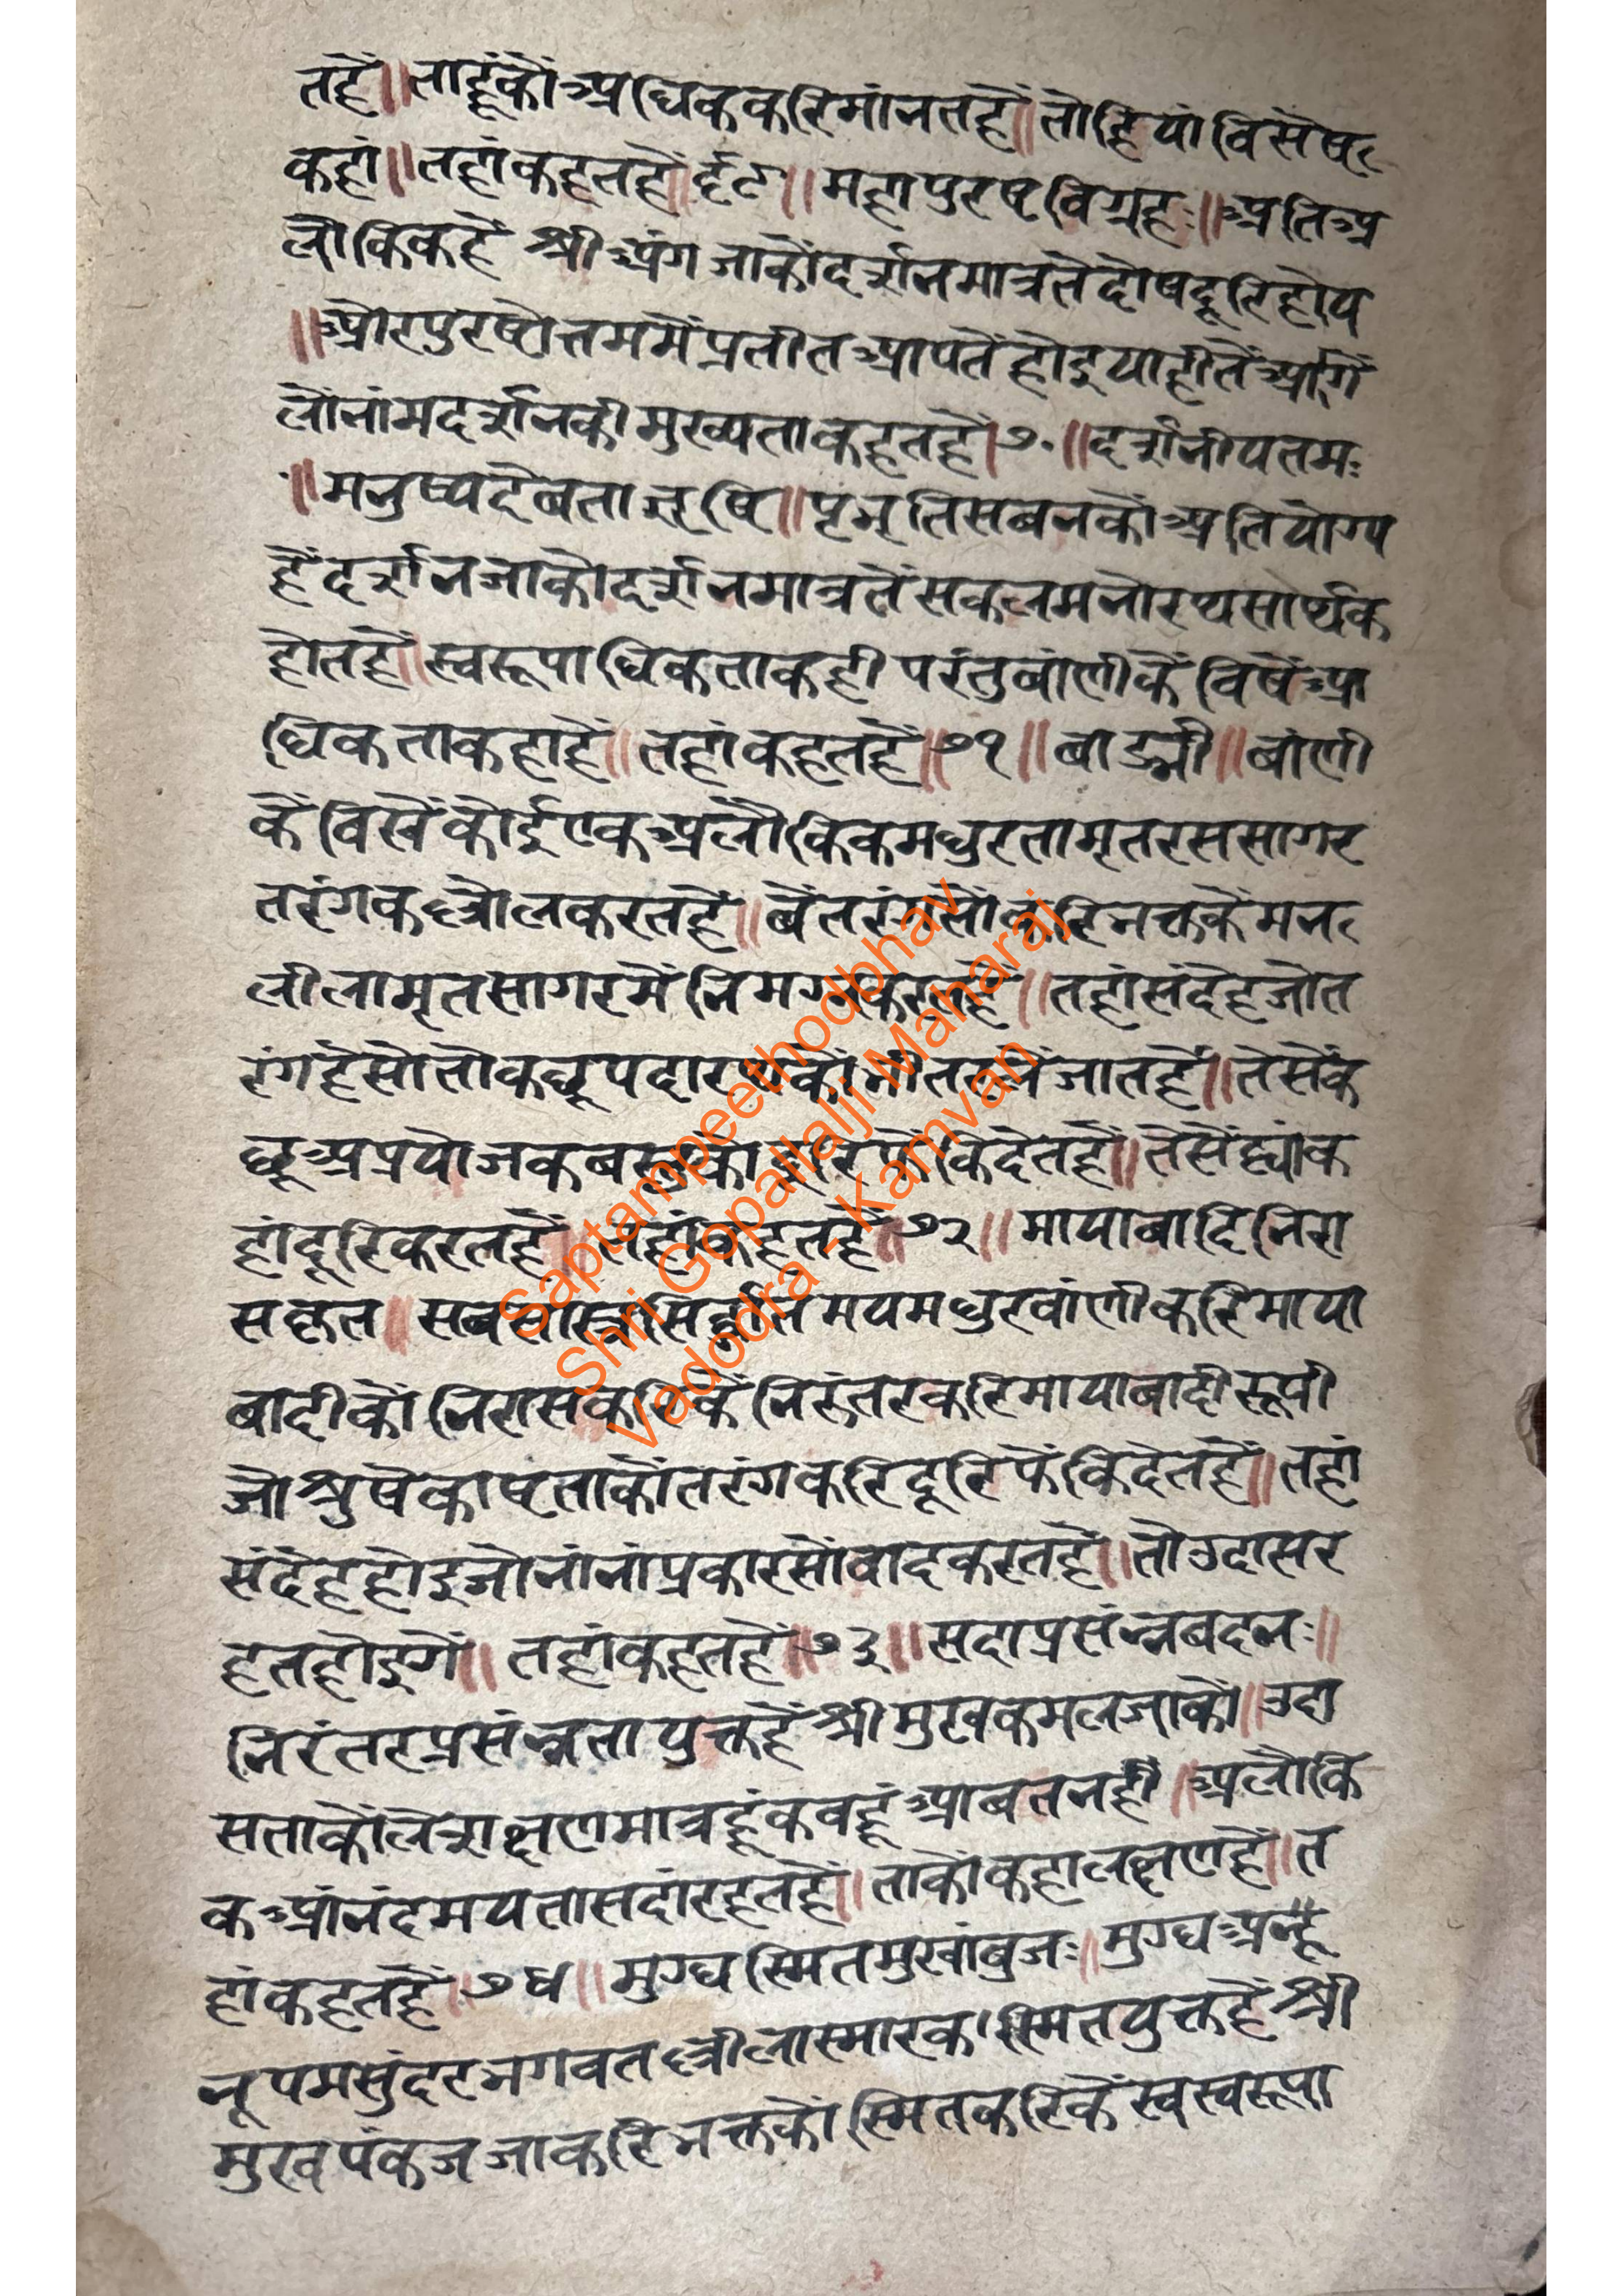 तहैं॥ताहूंकौंअधिककरिमांनतहैं॥तौहियांविसेष
कहां॥तहांकहतहैं॥६९॥महापुरषविग्रहः॥अतिअ
लौकिकहैं श्रीअंगजाकौंदर्शनमात्रतेदोषदूरिहोय
॥औरपुरषोत्तममैंप्रतीतआपतेंहोइयाहीतेंआगें
लौंनांमदर्शनकीमुख्यताकहतहैं।७०॥दर्शनीयतमः
॥मनुष्यदेबताऋषि॥पृभृतिसबनकौंअतियोग्य
हैंदर्शनजाकौदर्शनमात्रतेंसकलमनोरथसार्थक
होतहैं॥स्वरूपाधिकताकही परंतुबांणीकें विषेंआ
धिकताकहाहैं॥तहांकहतहैं॥७१॥बाङ्मी॥बांणी
कें विखेंकोईएकअलौकिकमधुरतामृतरससागर
तरंगकछ्रोलकरतहैं॥बेंतरंगसोंकरिभक्तकेंमन
लीलामृतसागरमेंनिमग्नकरतहैं॥तहांसंदेहजोत
रंगहैसोतोकछूपदारथकोंभीतरलेंजातहैं॥तेसेंक
छूअप्रयोजकबस्तुकोंदूरिफेंकिदेतहैं॥तेसेंह्यांक
हांदूरिकरतहैं॥तहांकहतहैं॥७२॥मायाबादिनिरा
सकृत॥सबसास्त्रसिद्धांतमयमधुरवांणीकरिमाया
बादीकौंनिरासकरिकेंनिरुंतरकरिमायाबादीरूपी
जोश्रुषेकाषताकौंतरंगकरिदूरिफेंकिदेतहैं॥तहां
संदेहहोइजोनांनांप्रकारसोंवादकरतहैं॥तौउदासर
हतहोइगें॥तहांकहतहैं॥७३॥सदाप्रसंन्नबदनः॥
निरंतरप्रसंन्नतायुक्तहैं श्रीमुखकमलजाकौं॥उदा
सताकौंलेशक्षणमात्रहूंकवहूंआबतनहीं॥अलौकि
कआंनंदमयतासदांरहतहैं॥ताकौंकहालक्षणहैं॥त
हांकहतहैं॥७४॥मुग्धस्मितमुखांबुजः॥मुग्धअत्यू
नूपमसुंदरभगवतछ्रीलास्मारकस्मितयुक्तहैंश्री
मुखपंकजजाकरिभक्तकौंस्मितकरिकेंस्वस्वरूपा
Saptampeethodbhav
Shri Gopallalji Maharaj
Vadodra - Kamvan